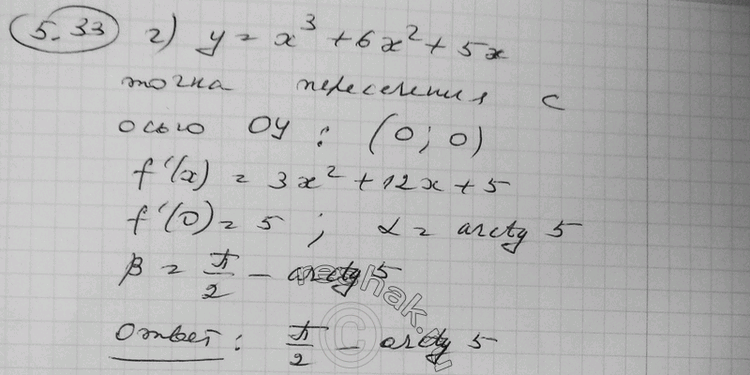 5.33 г) y = x³ + 6x² + 5x
точка пересечения с
осью OY : (0; 0)
f'(x) = 3x² + 12x + 5
f'(0) = 5 ; α = arctg 5
β = π/2 − arctg 5
Ответ : π/2 − arctg 5